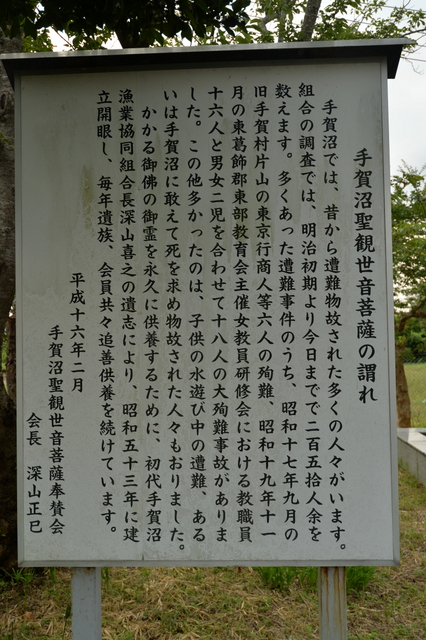 手賀沼聖観世音菩薩の謂れ
手賀沼では、昔から遭難物故された多くの人々がいます。
組合の調査では、明治初期より今日までで二百五拾人余を
数えます。多くあった遭難事件のうち、昭和十七年九月の
旧手賀村片山の東京行商人等六人の殉難、昭和十九年十一
月の東葛飾郡東部教育会主催女教員研修会における教職員
十六人と男女二児を合わせて十八人の大殉難事故がありま
した。この他多かったのは、子供の水遊び中の遭難、ある
いは手賀沼に敢えて死を求め物故された人々もおりました。
かかる御佛の御霊を永久に供養するために、初代手賀沼
漁業協同組合長深山喜之の遺志により、昭和五十三年に建
立開眼し、毎年遺族、会員共々追善供養を続けています。
平成十六年二月
手賀沼聖観世音菩薩奉賛会
会長 深山正巳